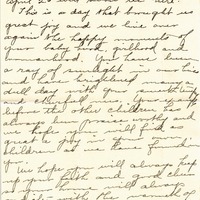 This is a day that brought us
great joy and we live over
again the happy moments of
your baby hood, girlhood and
womanhood. You have been
a ray of sunlight in our lives
have brightened many a
dull day with your
and cheerful
before the other children
always been praise worthy and
we hope you will find as
great a joy in your
children as we have found in
you.
We hope you will always keep
your faith and good cheer
will always
with the